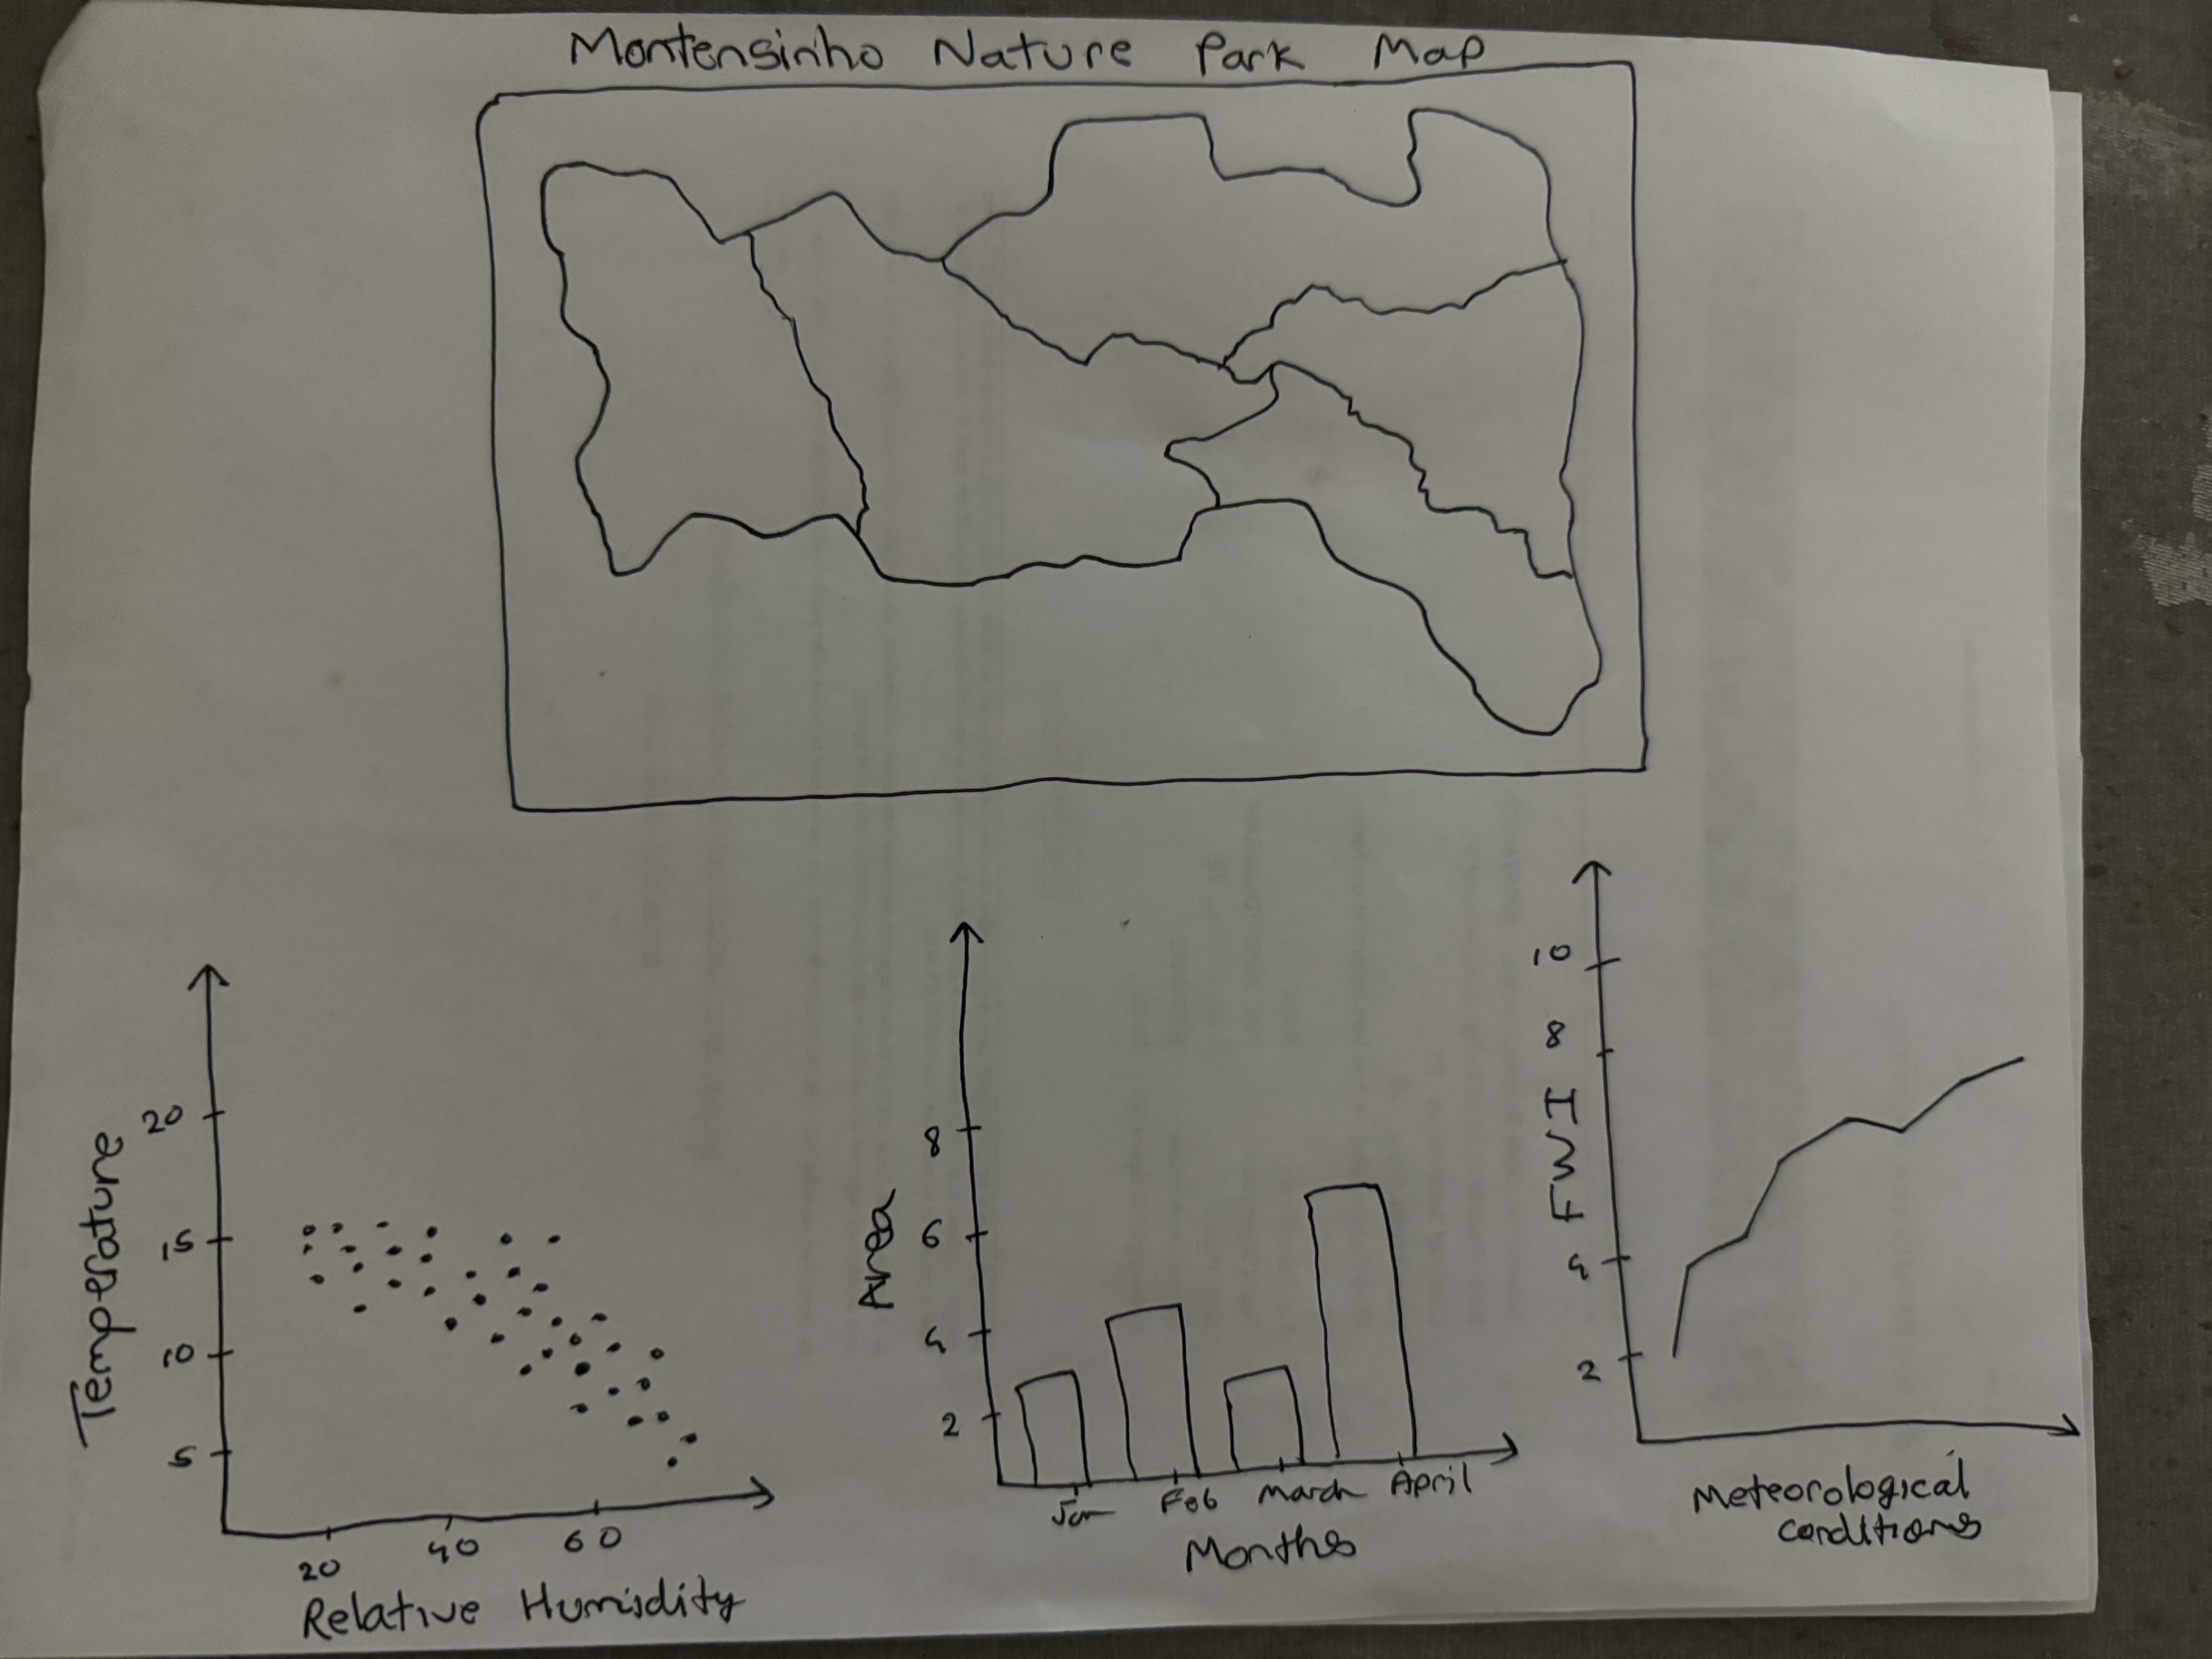 Montensinho Nature Park Map
Temperature
20
15
10
5
20 40 60
Relative Humidity
Area
8
6
4
2
Jan Feb March April
Months
FWI
10
8
4
2
Meteorological
conditions